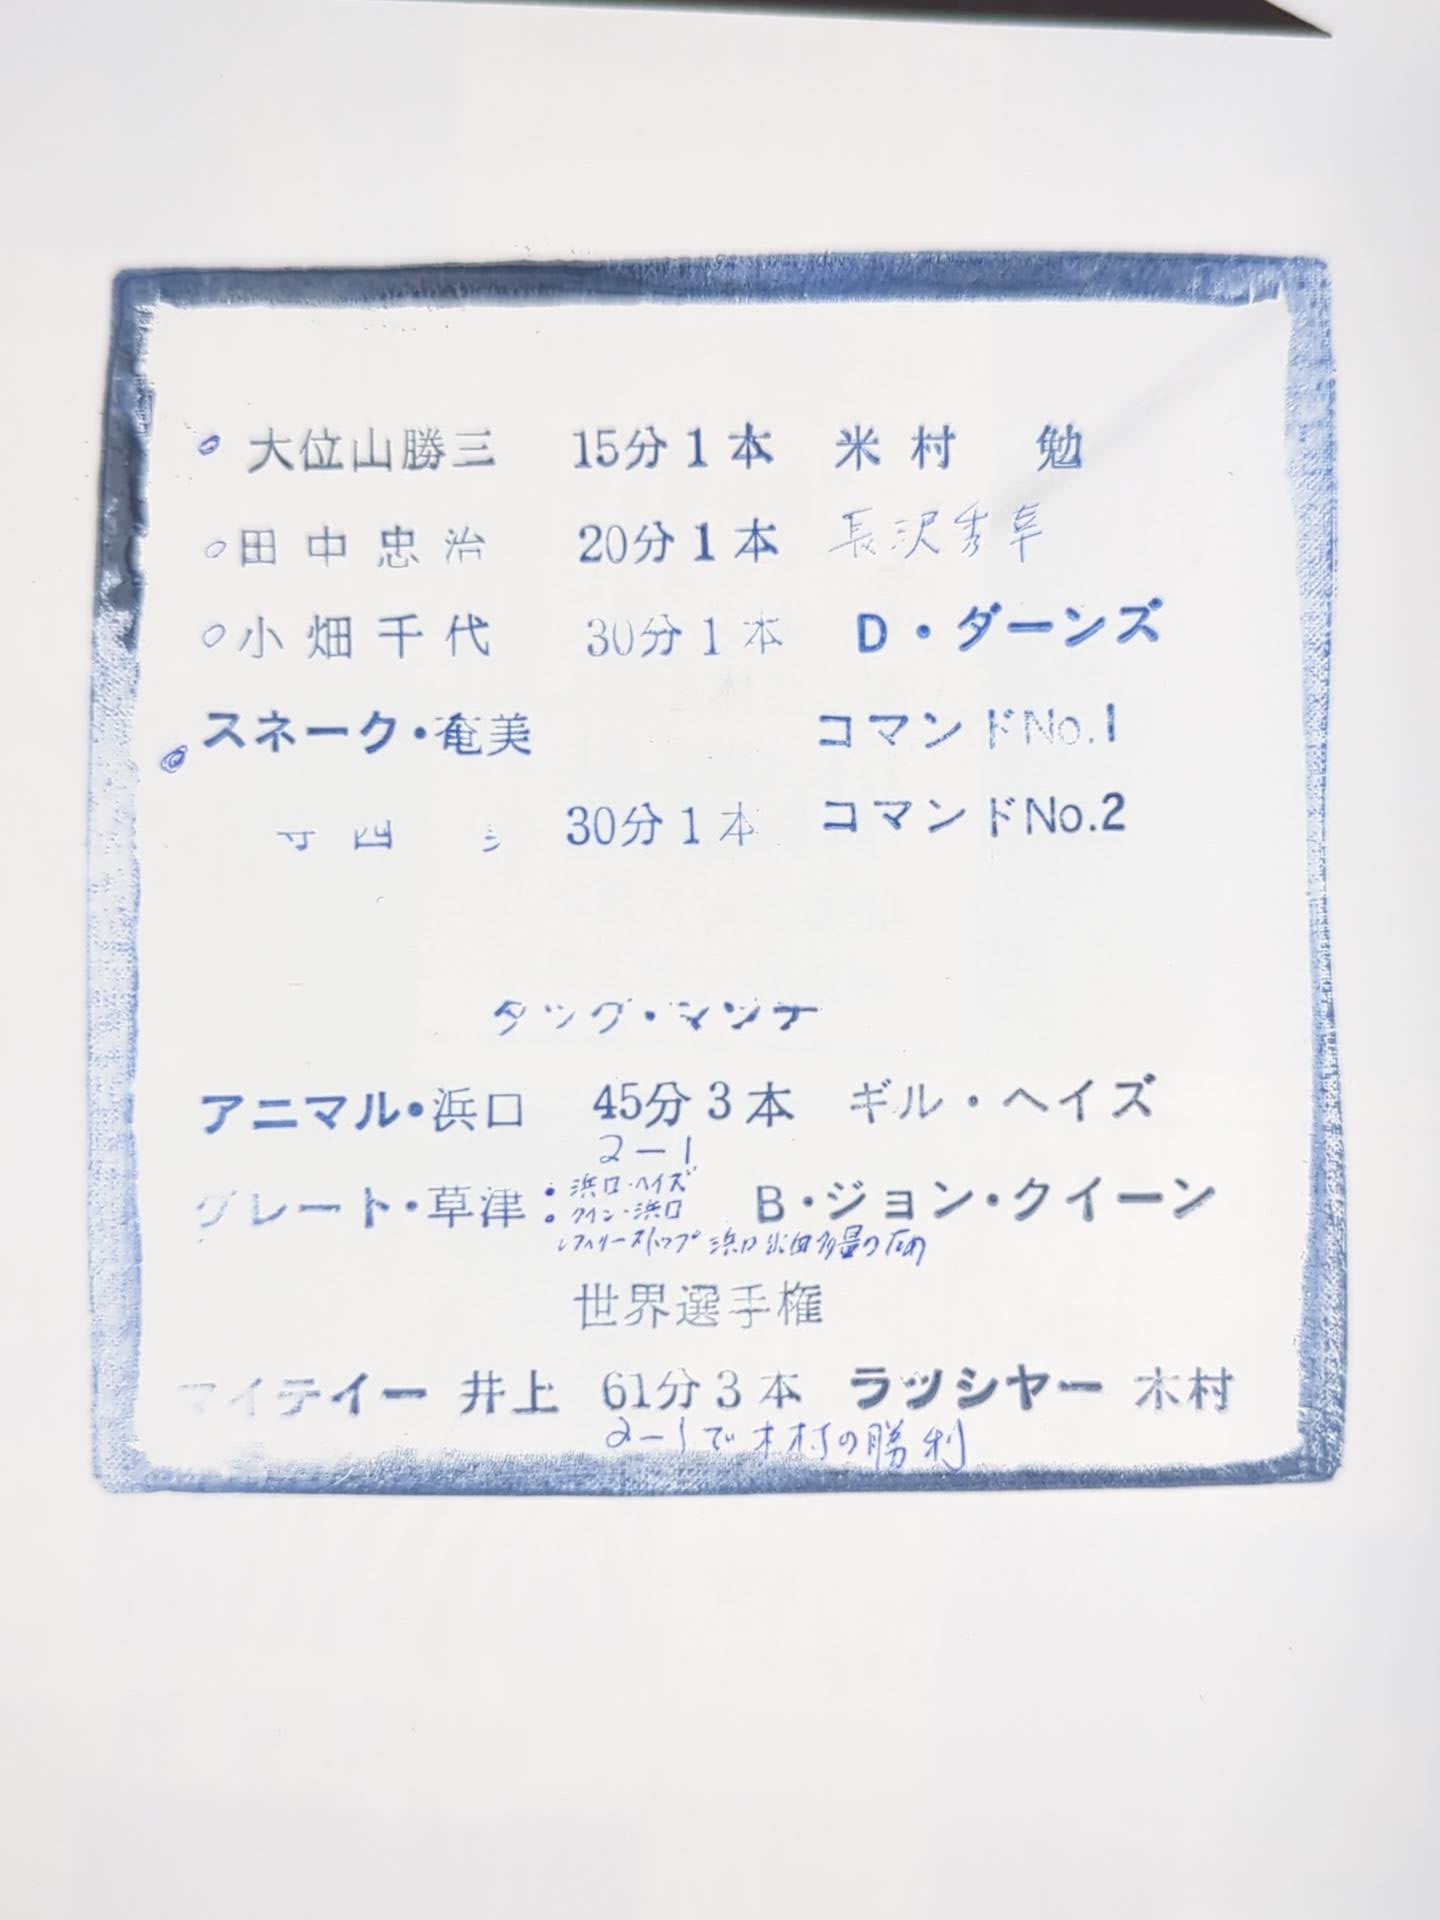 大位山勝三 15分1本 米村 勉
田中忠治 20分1本 長沢秀幸
小畑千代 30分1本 D・ダーンズ
スネーク・奄美 コマンドNo.1
寺西 30分1本 コマンドNo.2
タッグ・マッチ
アニマル・浜口 45分3本 ギル・ヘイズ
2－1
・浜口・ヘイズ
グレート・草津 B・ジョン・クイーン
・クイン・浜口
レフェリーストップ 浜口出血多量のため
世界選手権
マイテイー 井上 61分3本 ラツシヤー 木村
2－1で木村の勝利